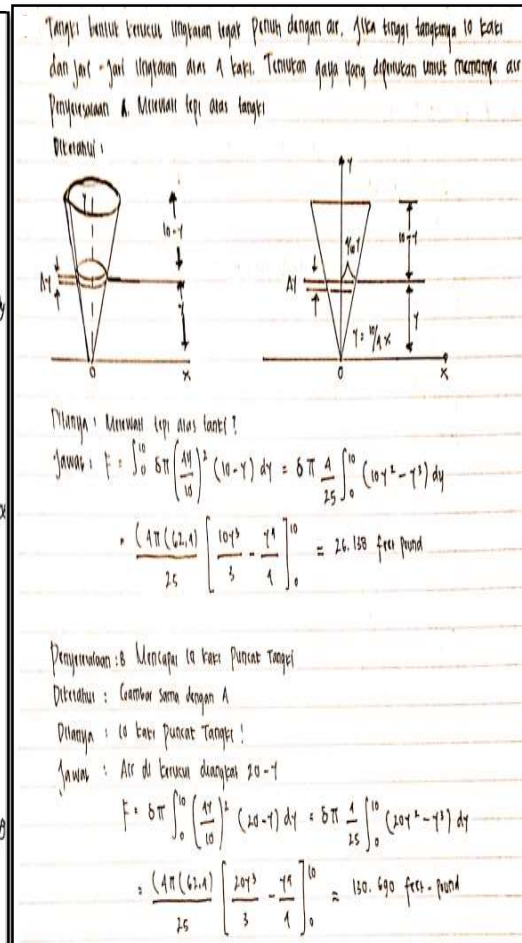 Tangki bentuk kerucut lingkaran tegak penuh dengan air. Jika tinggi tangkinya 10 kaki
dan jari-jari lingkaran atas 4 kaki. Tentukan gaya yang diperlukan untuk memompa air
Penyelesaian A. Melewati tepi atas tangki
Diketahui :
Y
10-Y
ΔY
Y
0
X
Y
4/10 Y
10-Y
ΔY
Y
Y = 10/4 X
0
X
Ditanya : Melewati tepi atas tanki ?
Jawab : F = ∫₀¹⁰ δπ (4Y/10)² (10-Y) dy = δπ 4/25 ∫₀¹⁰ (10Y² - Y³) dy
= (4π(62,4)/25 [10Y³/3 - Y⁴/4]₀¹⁰ = 26.138 feet pound
Penyelesaian : B Mencapai 10 kaki Puncak Tangki
Diketahui : Gambar sama dengan A
Ditanya : 10 kaki Puncak Tangki !
Jawab : Air di kerucut diangkat 20-Y
F = δπ ∫₀¹⁰ (4Y/10)² (20-Y) dy = δπ 4/25 ∫₀¹⁰ (20Y² - Y³) dy
= (4π(62,4)/25 [20Y³/3 - Y⁴/4]₀¹⁰ = 130.690 feet-pound